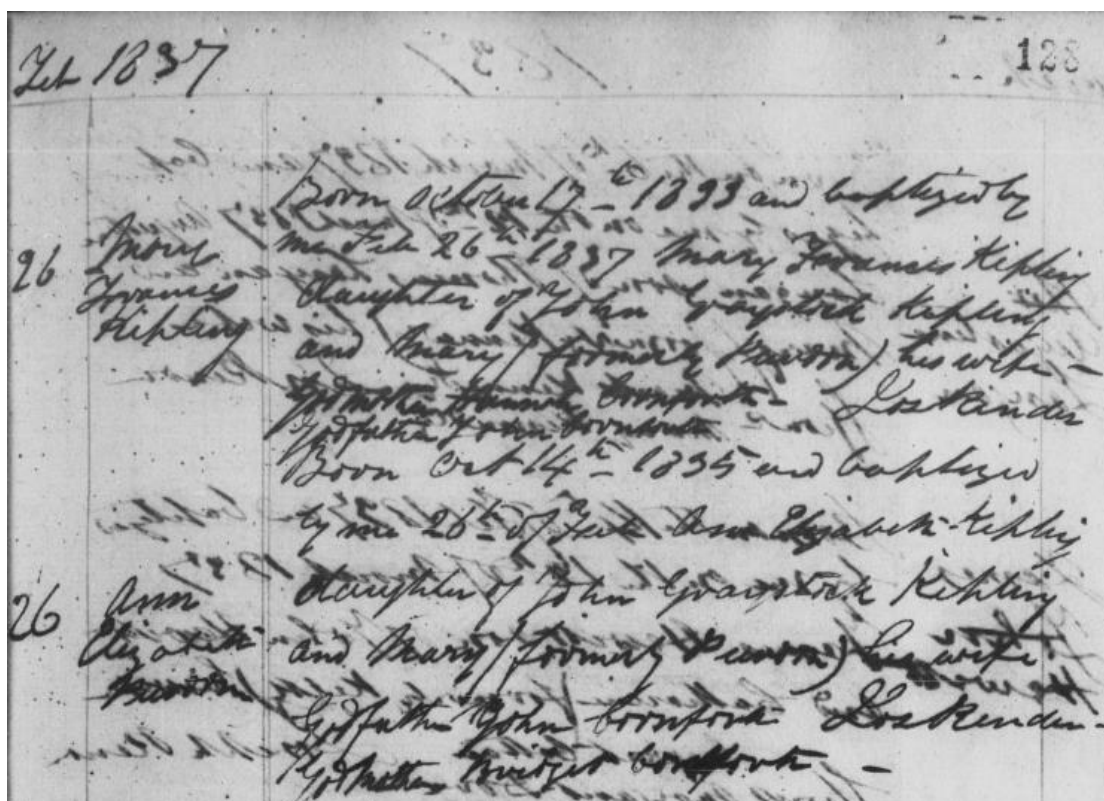 Feb 1837
128
Born October 17th 1833 and baptized by
26 Mary me Feb 26th 1837 Mary Frances Kipling
Frances daughter of John Graystock Kipling
Kipling and Mary (formerly Purdon) his wife -
Godmother Hannah Cornforth - Jos Render
Godfather John Cornforth
Born Oct 14th 1835 and baptized
by me 26th of Feb Ann Elizabeth Kipling
26 Ann daughter of John Graystock Kipling
Elizabeth and Mary (formerly Purdon) his wife
Godfather John Cornforth Jos Render -
Godmother Bridget Cornforth -